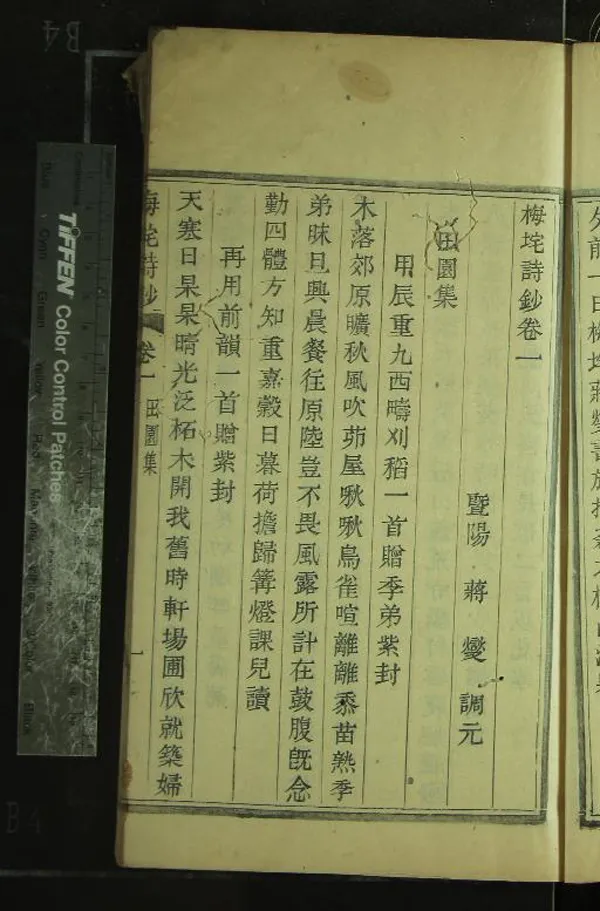 梅垞詩鈔卷一
暨陽 蔣 燮 調元
田園集
甲辰重九西疇刈稻一首贈季弟紫封
木落郊原曠秋風吹茆屋啾啾鳥雀喧離離黍苗熟季
弟昧旦興晨餐往原陸豈不畏風露所計在鼓腹既念
勤四體方知重嘉穀日暮荷擔歸篝燈課兒讀
再用前韻一首贈紫封
天寒日杲杲晴光泛柘木開我舊時軒場圃欣就築婦
梅垞詩鈔 卷一 田園集 一
TIFFEN Color Control Patches
Blue
Cyan
Green
Yellow
Red
Magenta
Black
B4
B4